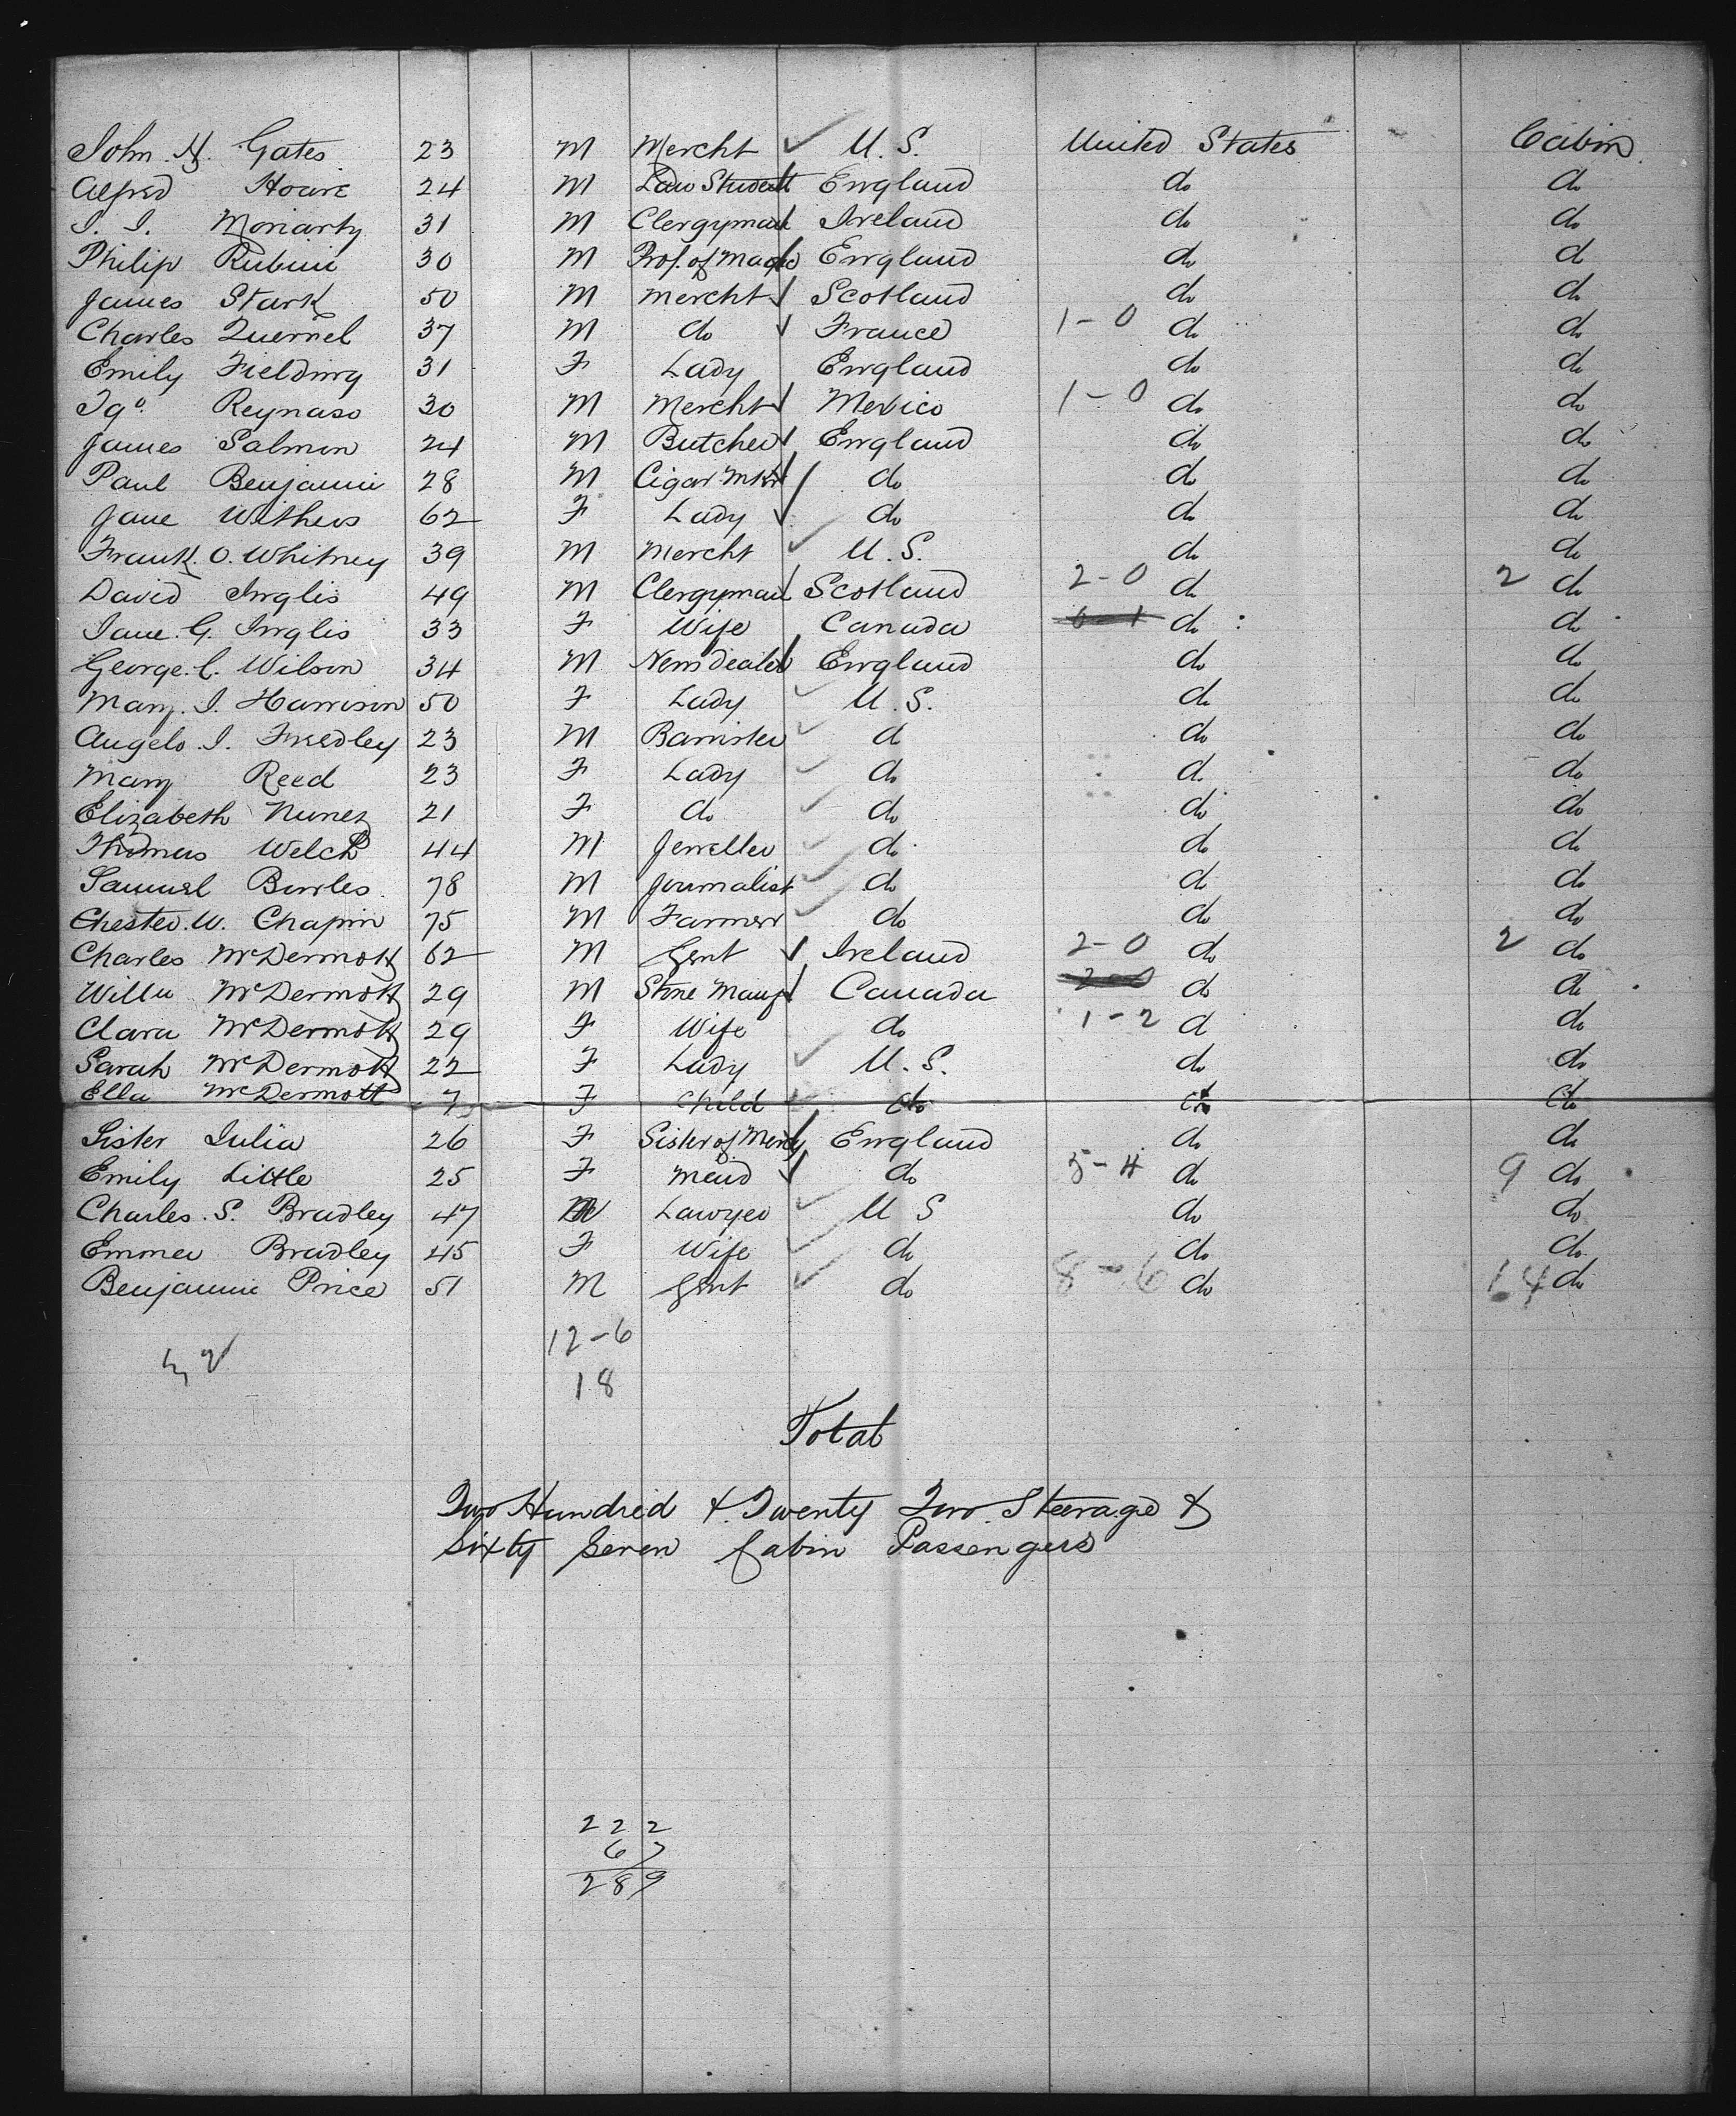 John H. Gates 23 M Mercht ✓ U. S. United States Cabin
Alfred Hoare 24 M Law Student England do do
J. J. Moriarty 31 M Clergyman Ireland do do
Philip Rubini 30 M Prof. of Magic England do d
James Stark 50 M Mercht ✓ Scotland do do
Charles Quernel 37 M do ✓ France 1-0 do do
Emily Fielding 31 F Lady England do do
Igo. Reynaso 30 M Mercht ✓ Mexico 1-0 do do
James Salmon 24 M Butcher ✓ England do do
Paul Benjamin 28 M Cigar Mkr ✓ do do do
Jane Withers 62 F Lady ✓ do do do
Frank. O. Whitney 39 M Mercht ✓ U. S. do do
David Inglis 49 M Clergyman Scotland 2-0 do 2 do
Jane. G. Inglis 33 F Wife Canada do do
George. C. Wilson 34 M Newsdealer England do do
Mary. J. Harrison 50 F Lady ✓ U. S. do do
Angelo. J. Freedley 23 M Barrister ✓ d do do
Mary Reed 23 F Lady ✓ do d. do
Elizabeth Nunez 21 F do ✓ do do do
Thomas Welch 44 M Jeweller ✓ do do do
Samuel Bowles 78 M Journalist ✓ do do do
Chester. W. Chapin 75 M Farmer ✓ do do do
Charles McDermott 62 M Gent ✓ Ireland 2-0 do 2 do
Willm McDermott 29 M Stone Manuf Canada do do
Clara McDermott 29 F Wife do 1-2 d do
Sarah McDermott 22 F Lady ✓ U. S. do do
Ella McDermott 7 F Child ✓ do do do
Sister Julia 26 F Sister of Mercy England do do
Emily Little 25 F Maid ✓ do 5-4 do 9 do
Charles. S. Bradley 47 M Lawyer ✓ U S do do
Emma Bradley 45 F Wife ✓ do do do
Benjamin Price 51 M Gent ✓ do 8-6 do 14 do
12-6
18
Total
Two Hundred & Twenty Two Steerage &
Sixty Seven Cabin Passengers
222
67
289